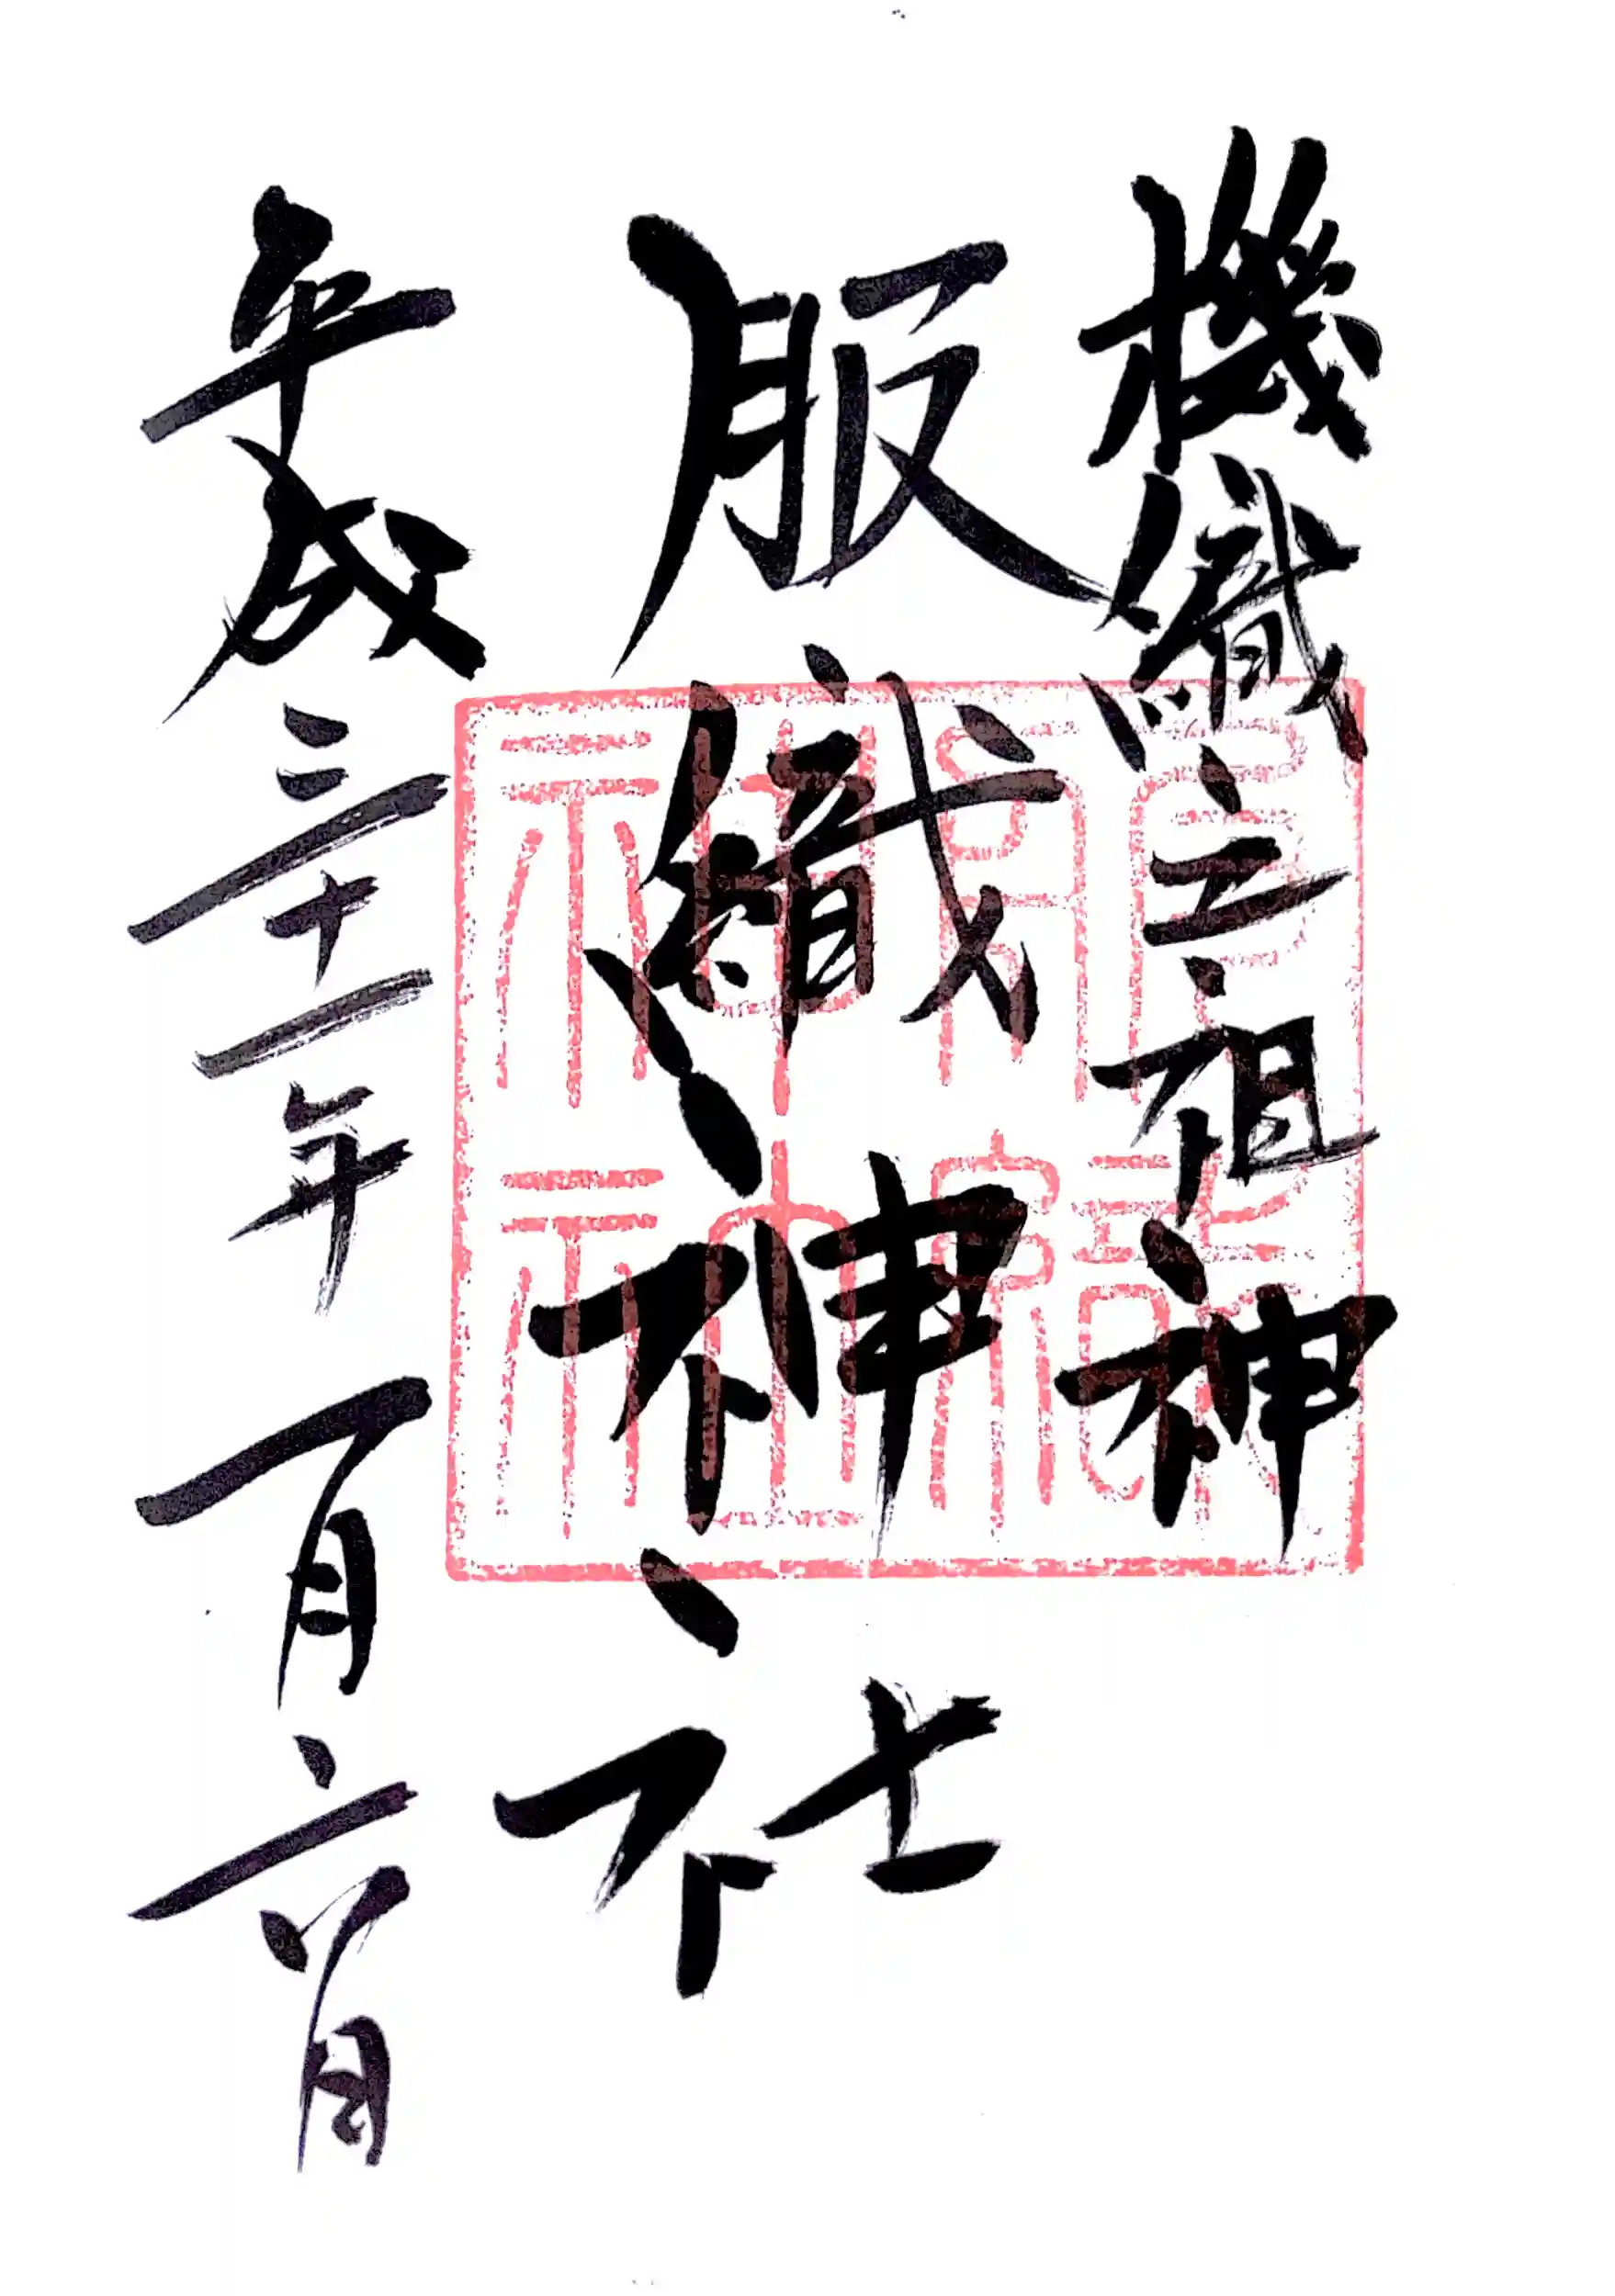 機織之祖神
服織神社
平成三十一年一月六日
服織神社